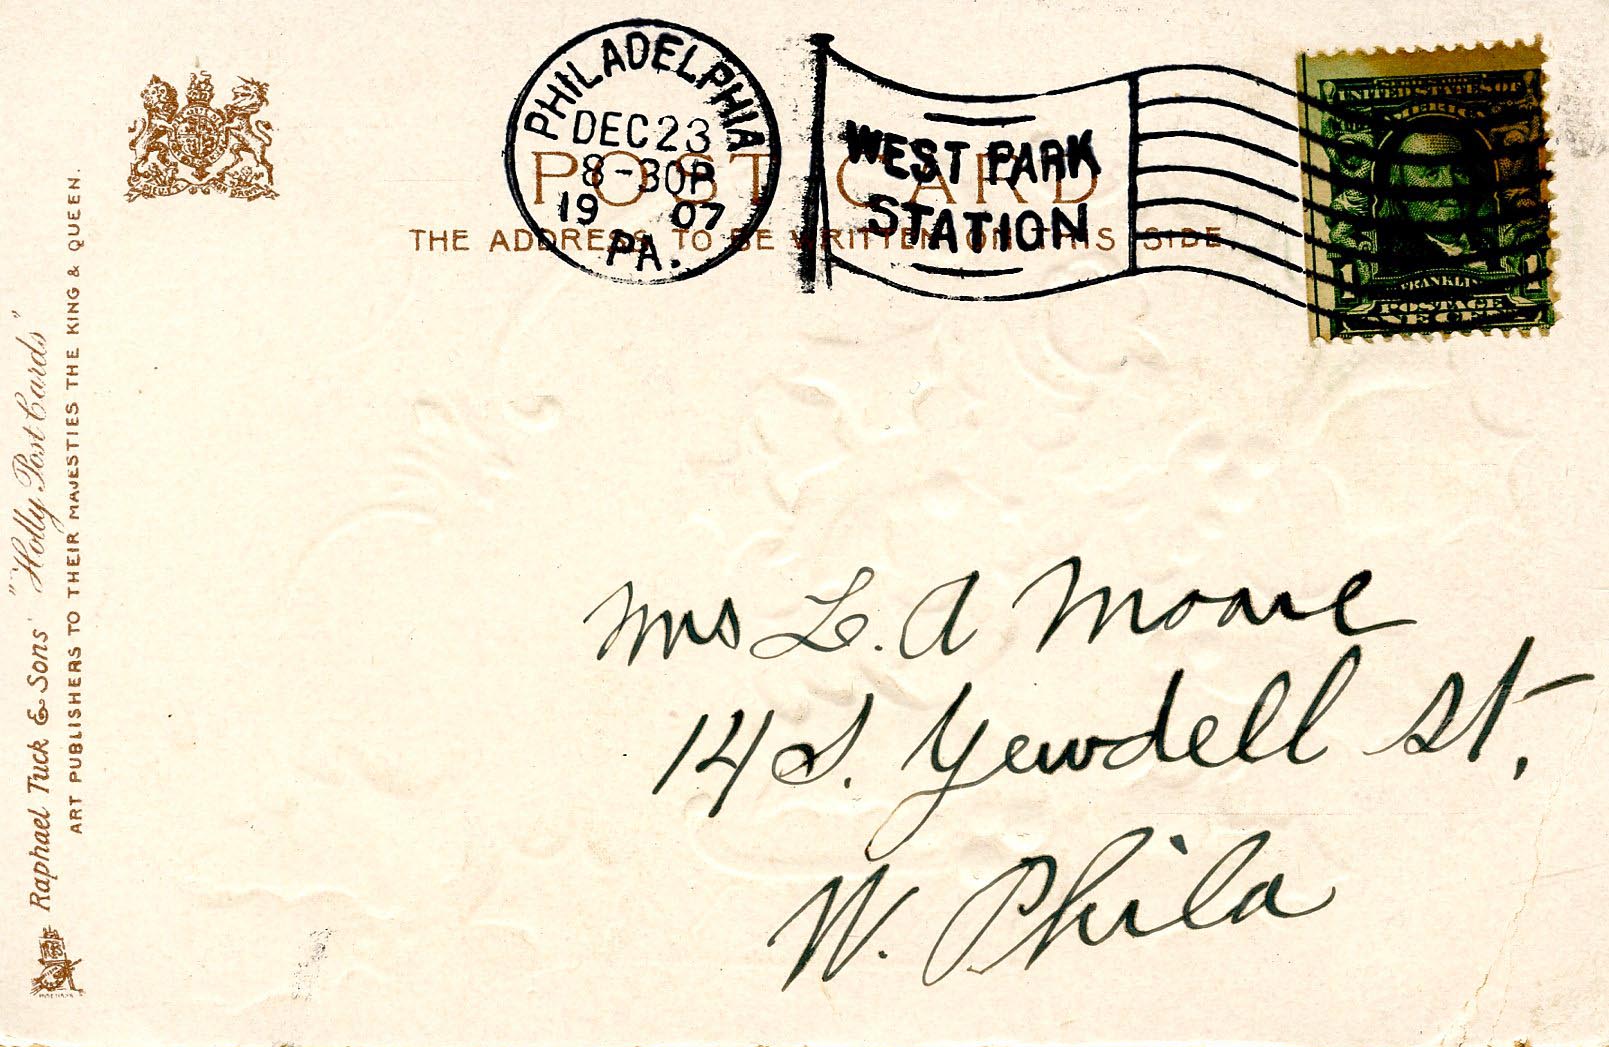 PHILADELPHIA
DEC 23
8-30P
19 07
PA.
WEST PARK
STATION
POST CARD
THE ADDRESS TO BE WRITTEN ON THIS SIDE.
UNITED STATES OF
AMERICA
1 FRANKLIN 1
POSTAGE
ONE CENT
Raphael Tuck & Sons' "Holly Post Cards"
ART PUBLISHERS TO THEIR MAJESTIES THE KING & QUEEN.
Mrs L. A Moore
14 S. Yewdell St.
W. Phila